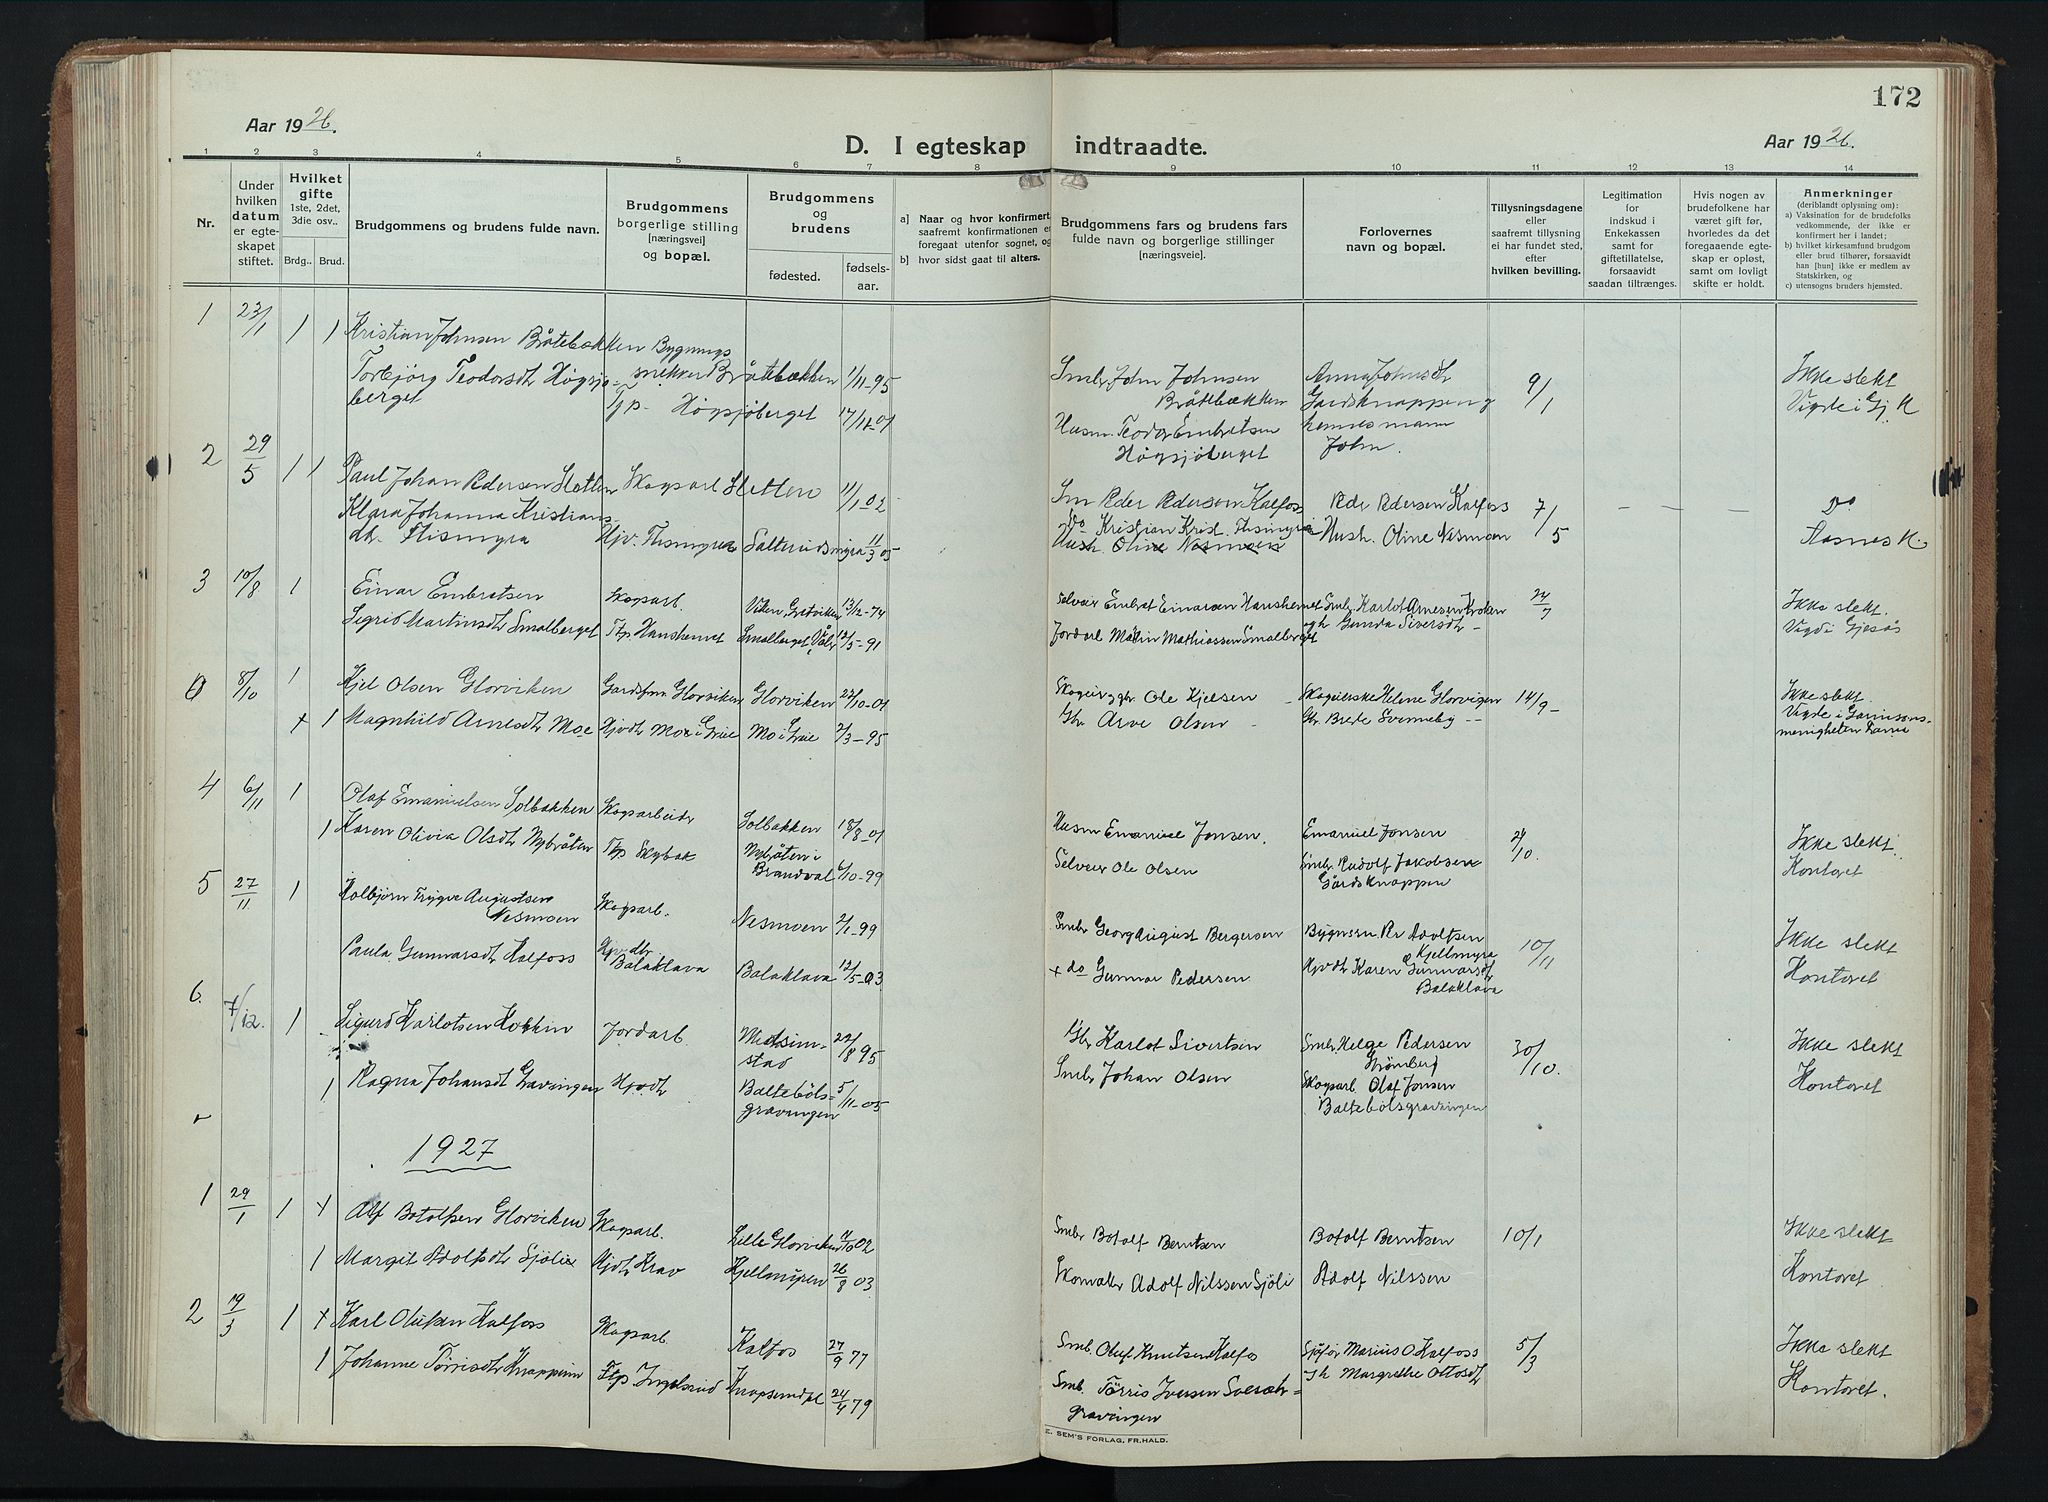 172
Aar 1926.
D. I egteskap indtraadte.
Aar 1926.
1 2 3 4 5 6 7 8 9 10 11 12 13 14
Nr.
Under hvilken datum er egteskapet stiftet.
Hvilket gifte 1ste, 2det, 3die osv..
Brdg.. Brud.
Brudgommens og brudens fulde navn.
Brudgommens borgerlige stilling [næringsvei] og bopæl.
Brudgommens og brudens
fødested.
fødsels-aar.
a] Naar og hvor konfirmert, saafremt konfirmationen er foregaat utenfor sognet, og
b] hvor sidst gaat til alters.
Brudgommens fars og brudens fars fulde navn og borgerlige stillinger [næringsveie].
Forlovernes navn og bopæl.
Tillysningsdagene eller saafremt tillysning ei har fundet sted, efter hvilken bevilling.
Legitimation for indskud i Enkekassen samt for giftetillatelse, forsaavidt saadan tiltrænges.
Hvis nogen av brudefolkene har været gift før, hvorledes da det foregaaende egteskap er opløst, samt om lovligt skifte er holdt.
Anmerkninger (deriblandt oplysning om):
a) Vaksination for de brudefolks vedkommende, der ikke er konfirmert her i landet;
b) hvilket kirkesamfund brudgom eller brud tilhører, forsaavidt han [hun] ikke er medlem av Statskirken, og
c) utensogns bruders hjemsted.
1 23/1 1 1 Kristian Johnsen Bråtebækken Bygnings
snekker Bråtebækken 1/11-95 Smbr John Johnsen Anna Johnsdt 9/1 Ikke slekt
Torbjörg Teodorsdt Högsjö- Bråtebækken Gardsknappen og Vigde i Gj. K
berget Tjp. Högsjöberget 17/11-01 Husm. Teodor Embretsen hennes mann
Högsjöberget John.
2 29/5 1 1 Paul Johan Pedersen Sletten Skogsarb Sletten 11/1 02 Sm Peder Pedersen Kalfoss Peder Pedersen Kalfoss 7/5 — — — Do
Klara Johanna Kristians Do Kristian Krist. Flismyra Hush. Oline Nesmoen Aasnes K.
dt. Flismyra Hjv. Flismyra 11/3 05 Hush. Oline Nesmoen
3 10/8 1 Einar Embretsen Skogarb. Viken Gretviken 13/12-74 Selveier Embret Einarsen Hanshemet Smbr Karlot Arnesen Kroken 24/7 Ikke slekt.
Sigrid Martinsdt Smalberget Ttp Hanshemet Smalberget, Våler 12/5-91 Jordarb Martin Mathiassen Smalberget og Gunda Siversdt - Vigd i Gjesås
0 8/10 1 Kjel Olsen Glorviken Gardsfm Glorviken Glorviken 27/10-01 Ole Kjelsen Helene Glorvigen 14/9 - Ikke slekt
+ 1 Magnhild Arnesdt Moe Hjvdt Moe i Grue Mo i Grue 2/3-95 Gbr Arve Olsen Gbr. Brede Svenneby - Vigde i Garnisons-
menigheten
4 6/11 1 Olaf Emanuelsen Solbakken Skogarbeidr Solbakken 18/8-01 Husm Emanuel Jonsen. Emanuel Jonsen 24/10. Ikke slekt.
1 Karen Olivia Olsdt Nybråten Ttp Skybak Nybråten i Selveier Ole Olsen Smbr. Rudolf Jakobsen Kontoret
Brandval 6/10-99 Gårdsknappen
5 27/11 1 Kolbjørn Trygve Augustsen
Nesmoen Skogsarb. Nesmoen 2/1-99 Smbr Georg August Bergersen Bygnsn. Pr Adolfsen 10/11 Ikke slekt
Kjellmyra
Paula Gunnarsdt Kalfoss Hjvdtr Balaklava Balaklava 12/5-03 + do Gunnar Pedersen Hjvdt Karen Gunnarsdt Kontoret
Balaklava
6. 7/12. 1 Sigurd Karlotsen Jordarb. Medsim-
stad 22/8 95 Gbr Karlot Sivertsen Smbr Helge Pedersen 30/10. Ikke slekt
Grönberg
1 Ragna Johansdt Gravingen Hjvdt Baltebøls-
gravingen 5/11-05 Smbr Johan Olsen Skogsarb. Olaf Jonsen Kontoret
Baltebølsgravingen
1927
1 29/1 1 + Alf Botolfsen Glorviken Skogarb. Lelle Glorviken 02 Smbr Botolf Berntsen Botolf Berntsen 10/1 Ikke slekt
1 Margit Adolfsdt Sjölie Hjdt Krav 26/8 03 Skomaker Adolf Nilssen Sjöli Adolf Nilssen Kontoret
2 19/3 1 + Karl Olufsen Kalfoss Skogsarb. Kalfos 27/9 77 Smb. Oluf Knutsen Kalfos Sjåför Marius O Kalfoss 5/3 Ikke slekt
1 Johanne Törrisdt Knappmn Ttp Ingelsrud 24/4 79 Smb. Törris Iversen Margrethe Ottosdt Kontoret.
gravingen
E. SEM'S FORLAG, FR.HALD.